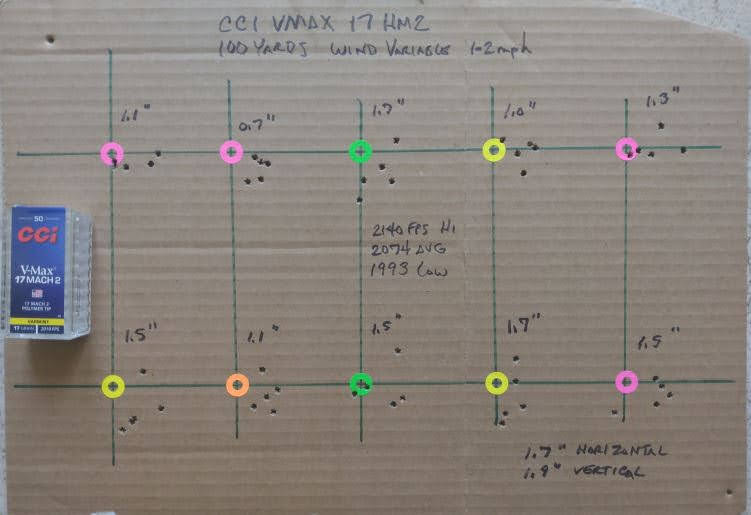 CCI VMAX 17 HM2
100 YARDS WIND VARIABLE 1-2 mph
1.1"
0.7"
1.7"
1.0"
1.3"
2140 FPS HI
2074 AVG
1993 LOW
50
CCI
V-Max
17 MACH 2
17 MACH 2
POLYMER TIP
VARMINT
17 GRAIN 2010 FPS
1.5"
1.1"
1.5"
1.7"
1.5"
1.7" HORIZONTAL
1.9" VERTICAL